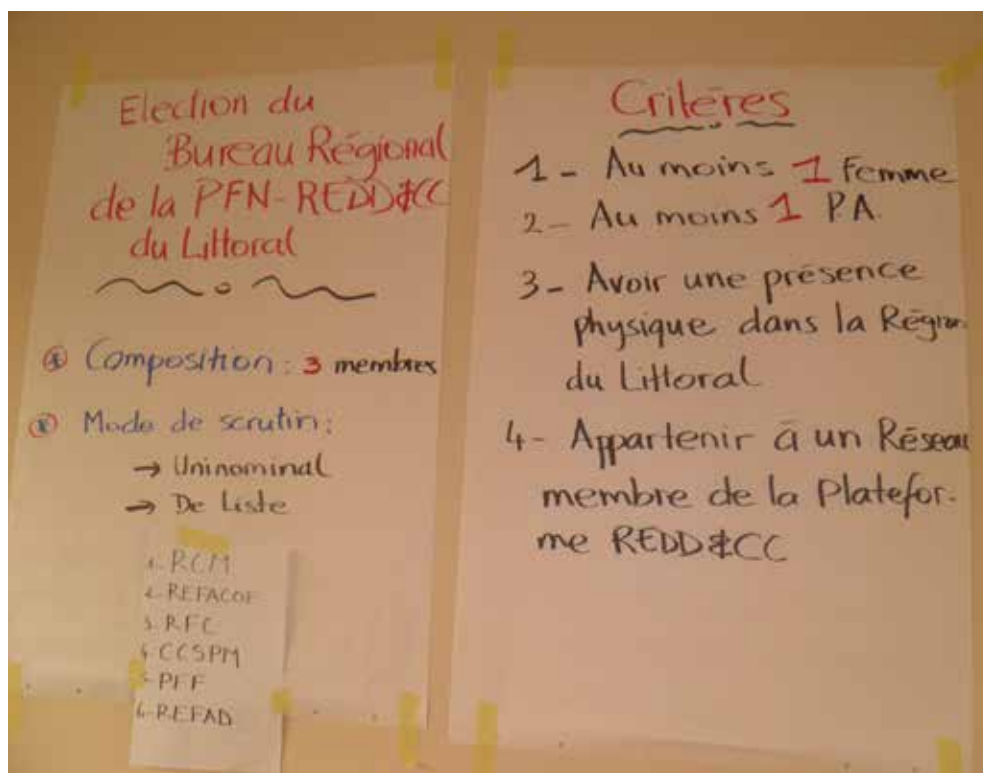 Election du
Bureau Régional
de la PFN-REDD&CC
du Littoral
Composition : 3 membres
Mode de scrutin :
→ Uninominal
→ De Liste
1. RCM
2. REFACOF
3. RFC
4. CCSPM
5. PFF
6. REFAD
Critères
1 - Au moins 1 Femme
2 - Au moins 1 PA.
3 - Avoir une présence
physique dans la Région
du Littoral
4 - Appartenir à un Réseau
membre de la Platefor-
me REDD&CC